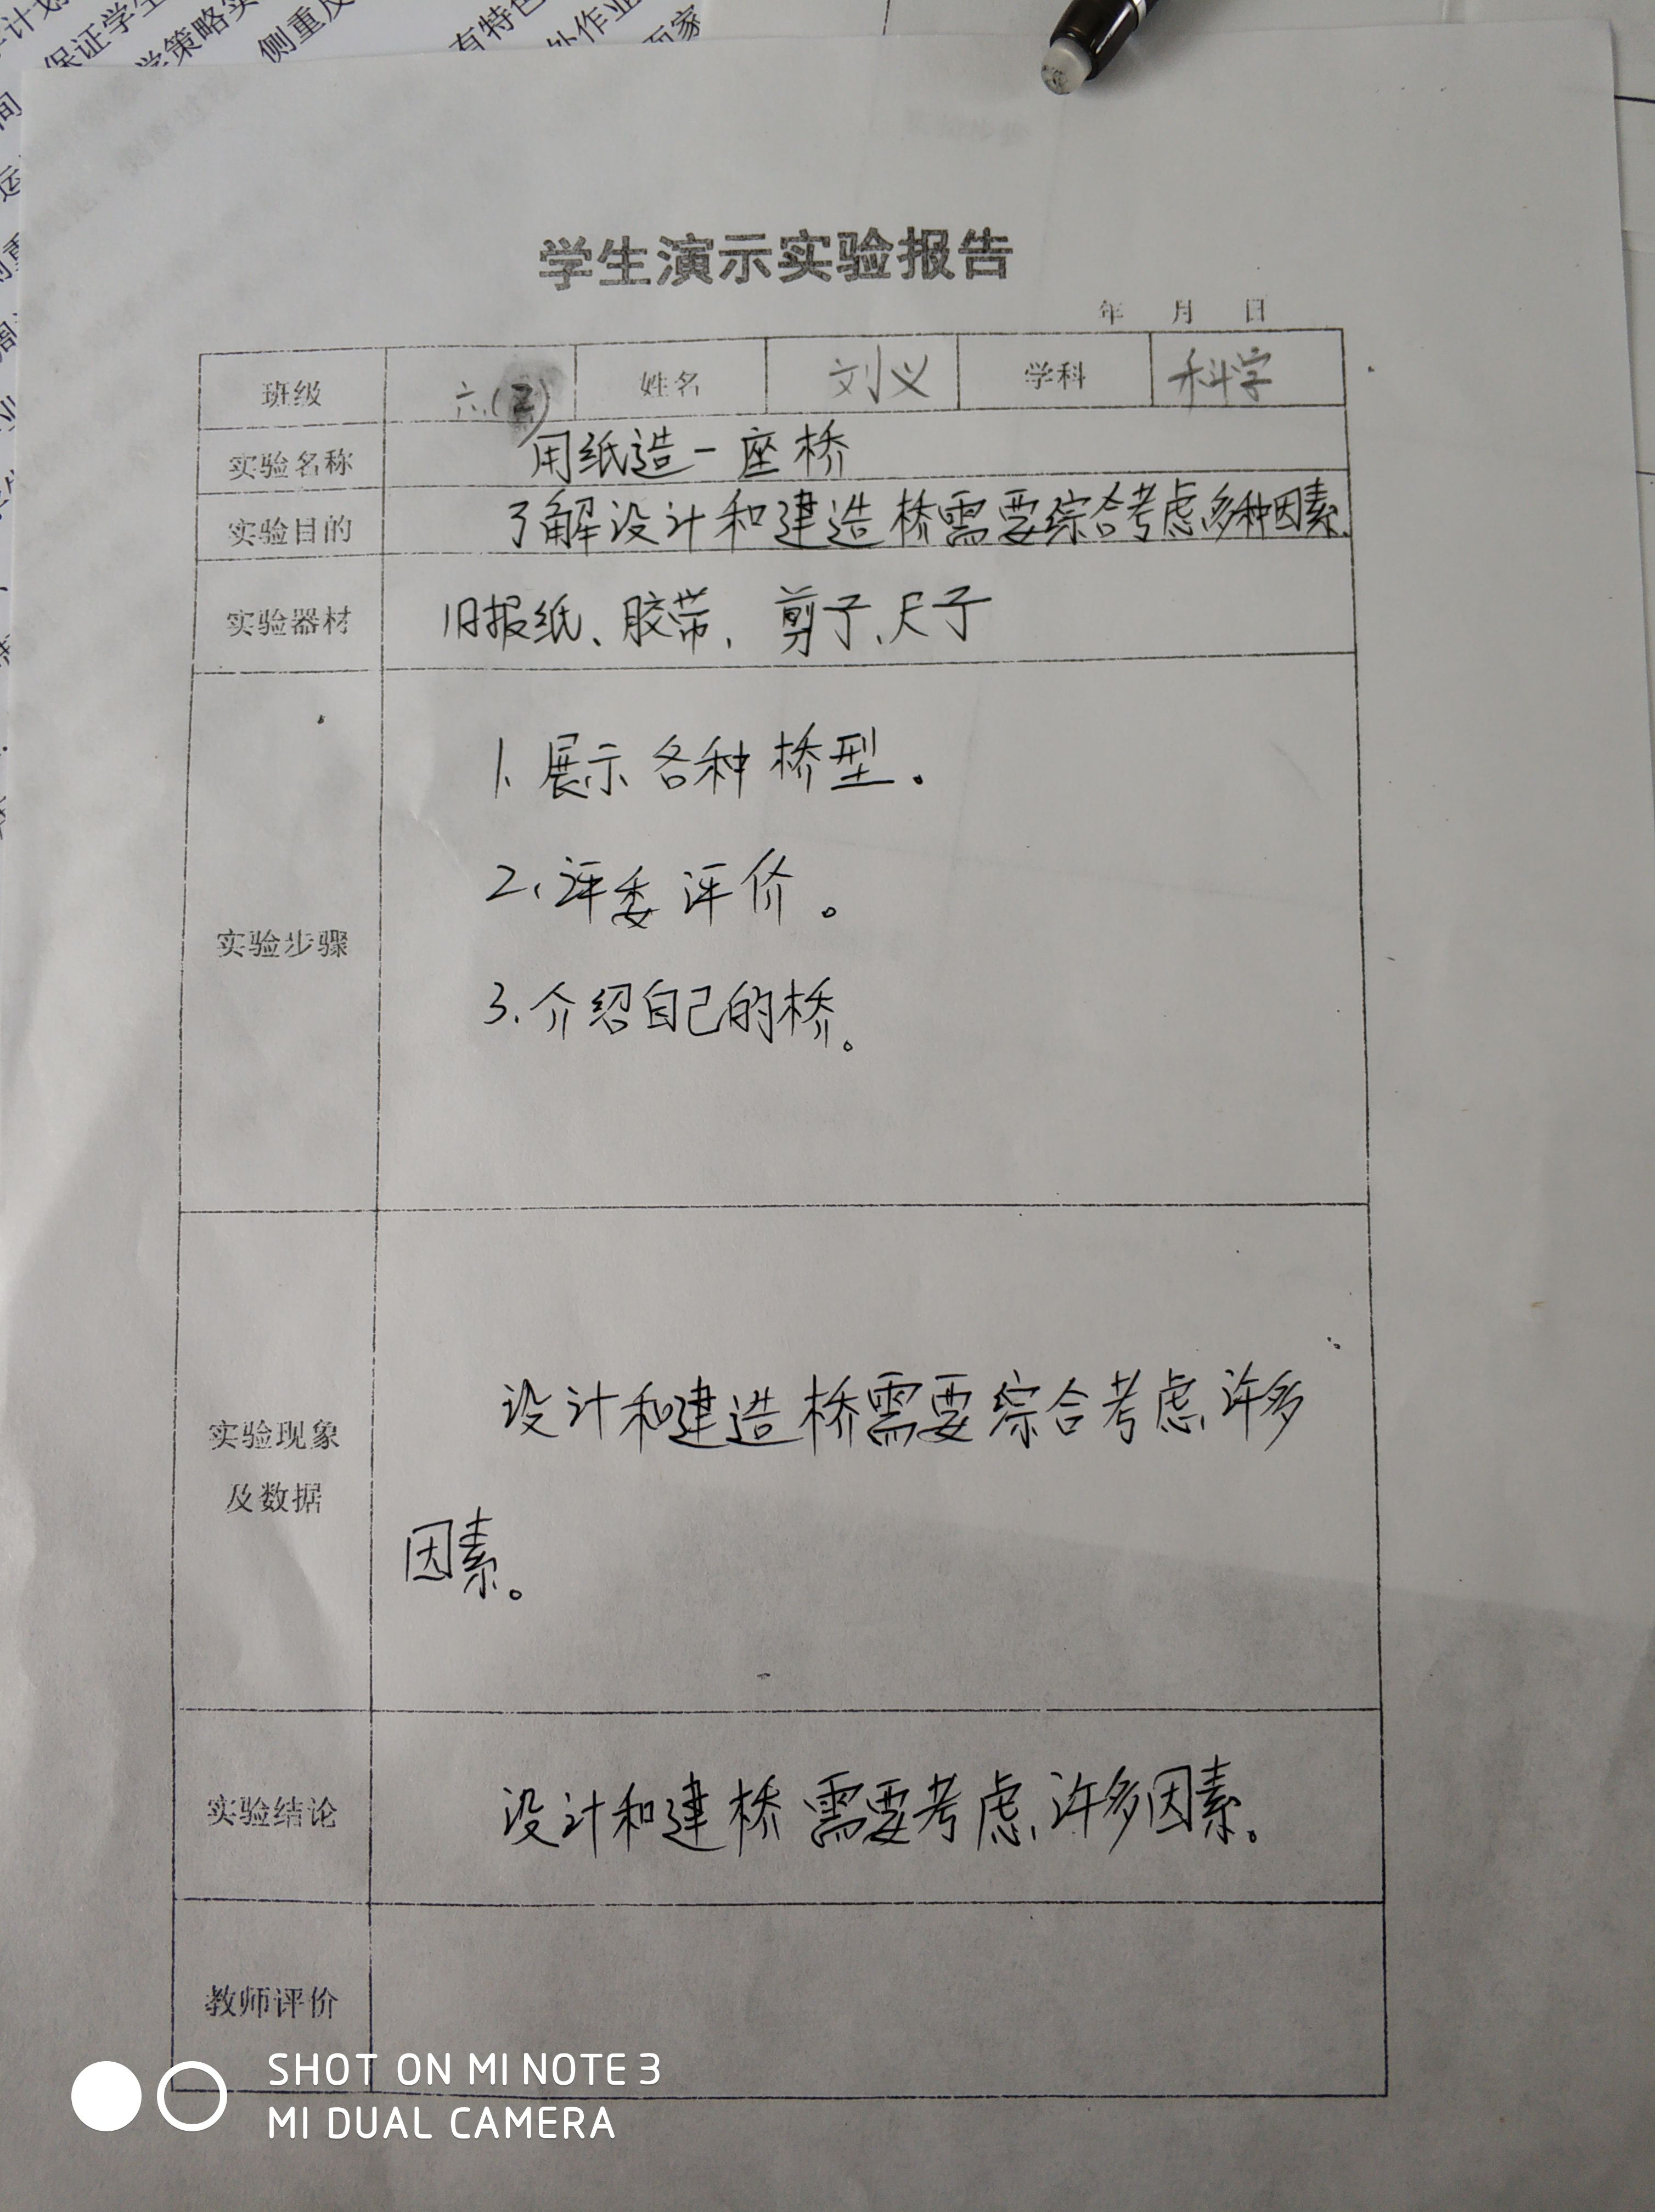 学生演示实验报告
年 月 日
班级 六.() 姓名 刘义 学科 科学
实验名称 用纸造一座桥
实验目的 了解设计和建造桥需要综合考虑多种因素.
实验器材 旧报纸、胶带、剪子、尺子
1、展示各种桥型。
2、评委评价。
实验步骤
3.介绍自己的桥。
设计和建造桥需要综合考虑许多
实验现象
及数据
因素。
实验结论 设计和建桥需要考虑许多因素。
教师评价
SHOT ON MI NOTE 3
MI DUAL CAMERA
保证学生
学策略实
侧重及
有特色
外作业